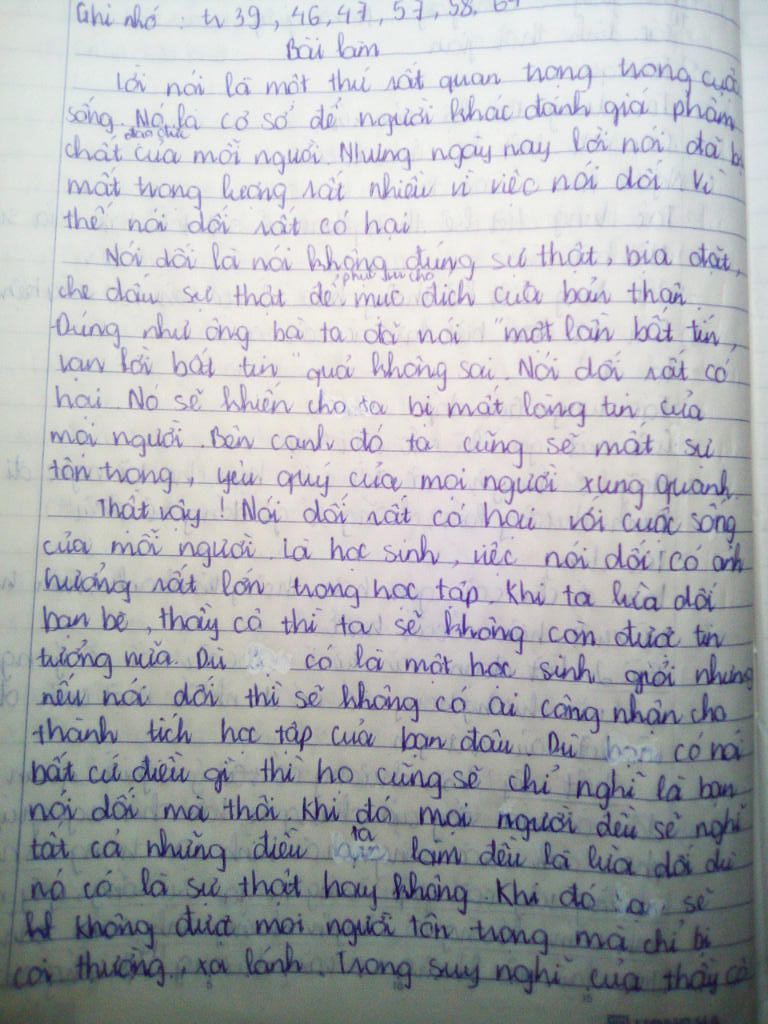 Ghi nhớ : tr 39, 46, 47, 57, 58, 64
Bài làm
Lời nói là một thứ rất quan trọng trong cuộc
sống. Nó là cơ sở để người khác đánh giá phẩm
đạo đức
chất của mỗi người. Nhưng ngày nay lời nói đã bị
mất trọng lượng rất nhiều vì việc nói dối. Vì
thế nói dối rất có hại.
Nói dối là nói không đúng sự thật, bịa đặt,
phục vụ cho
che dấu sự thật để mục đích của bản thân.
Đúng như ông bà ta đã nói "một lần bất tín,
vạn lời bất tín" quả không sai. Nói dối rất có
hại. Nó sẽ khiến cho ta bị mất lòng tin của
mọi người. Bên cạnh đó ta cũng sẽ mất sự
tôn trọng, yêu quý của mọi người xung quanh.
Thật vậy! Nói dối rất có hại với cuộc sống
của mỗi người. Là học sinh, việc nói dối có ảnh
hưởng rất lớn trong học tập. Khi ta lừa dối
bạn bè, thầy cô thì ta sẽ không còn được tin
tưởng nữa. Dù có là một học sinh giỏi nhưng
nếu nói dối thì sẽ không có ai công nhận cho
thành tích học tập của bạn đâu. Dù bạn có nói
bất cứ điều gì thì họ cũng sẽ chỉ nghĩ là bạn
nói dối mà thôi. Khi đó mọi người đều sẽ nghĩ
ta
tất cả những điều làm đều là lừa dối dù
nó có là sự thật hay không. Khi đó ta sẽ
không được mọi người tôn trọng mà chỉ bị
coi thường, xa lánh. Trong suy nghĩ của thầy cô